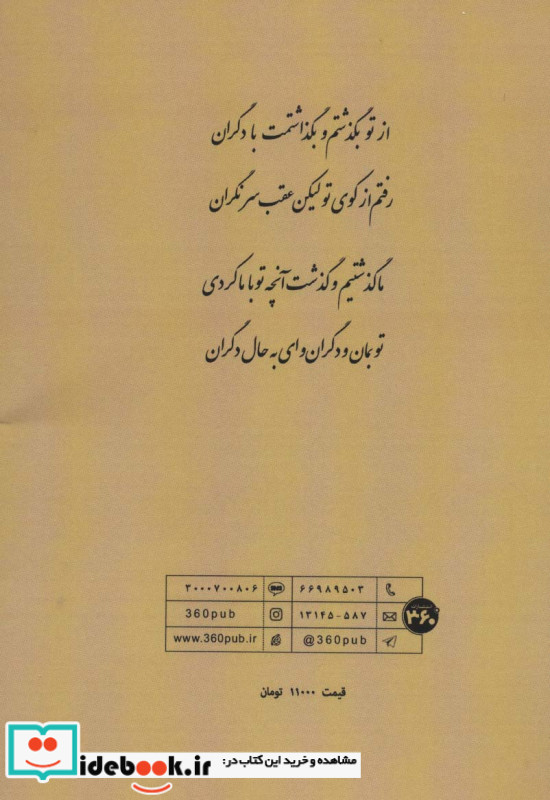 از تو بگذشتم و بگذاشتمت با دگران
رفتم از کوی تو لیکن عقب سر نگران
ما گذشتیم و گذشت آنچه تو با ما کردی
تو بمان و دگران وای به حال دگران
۶۶۹۸۹۵۰۳ ۳۰۰۰۷۰۰۸۰۶
۱۳۱۴۵-۵۸۷ 360pub
@360pub www.360pub.ir
۳۶۰
قیمت ۱۱۰۰۰ تومان
مشاهده و خرید این کتاب در:
idebook.ir